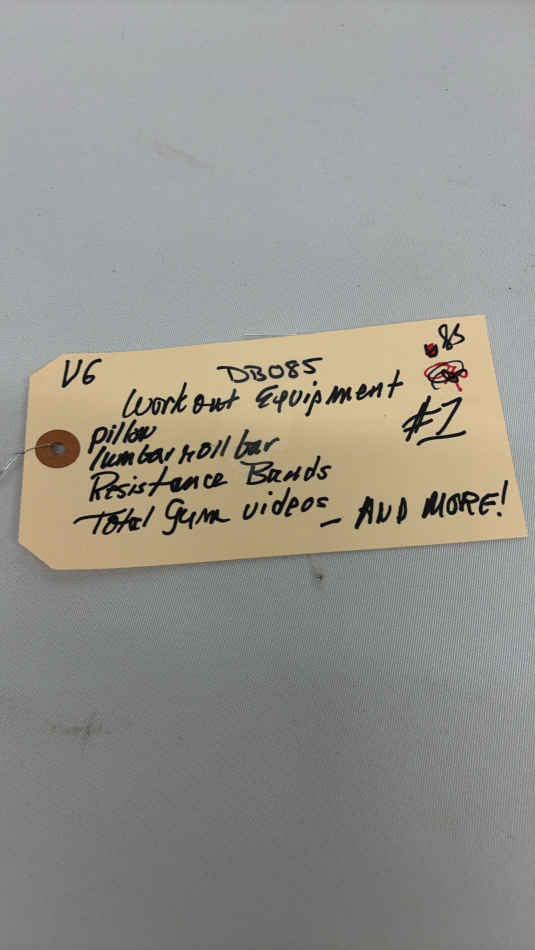 V6
DB085
085
Workout Equipment
#1
pillow
lumbar roll bar
Resistance Bands
Total Gym videos - AND MORE!